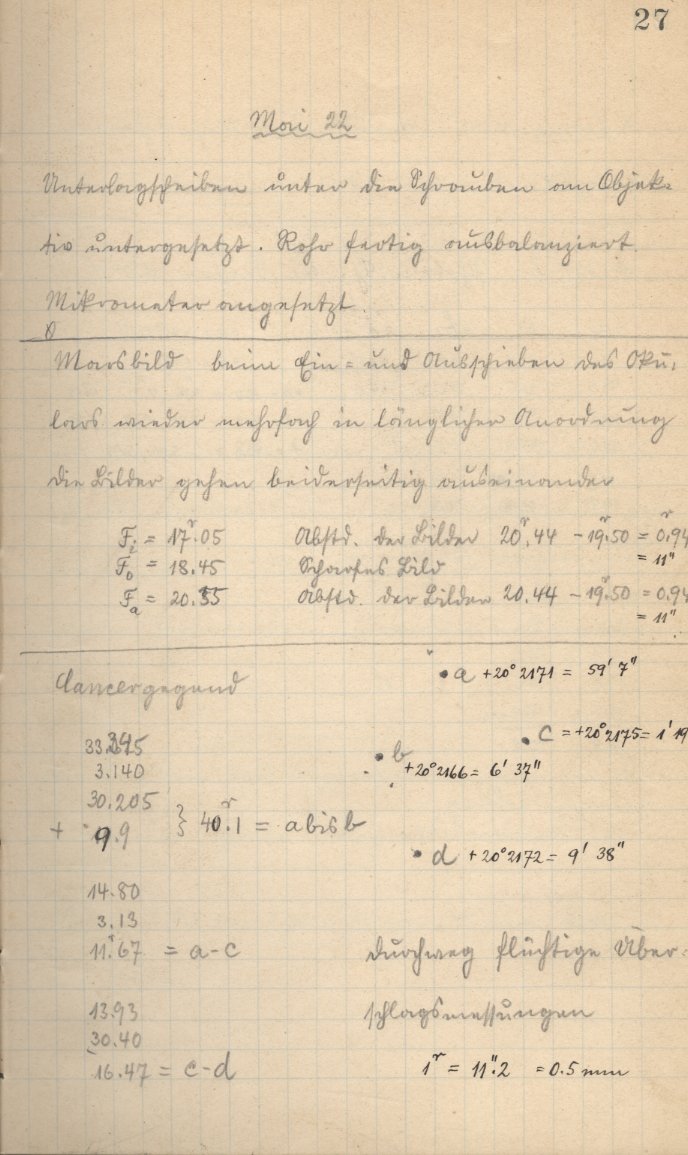 27
Mai 22
Unterlagscheiben unter die Schrauben am Objek=
tiv untergesetzt. Rohr fertig ausbalanziert.
Mikrometer angesetzt.
Marsbild beim Ein= und Ausschieben des Oku=
lars wieder mehrfach in länglicher Anordnung
die Bilder gehen beiderseitig auseinander
Fi = 17.05 Abstd. der Bilder 20r.44 - 19r.50 = 0r.94
= 11"
Fo = 18.45 Scharfes Bild
Fa = 20.35 Abstd. der Bilder 20.44 - 19r.50 = 0.94
= 11"
Cancergegend
a +20° 2171 = 59' 7"
c = +20° 2175 = 1' 19
b
+20° 2166 = 6' 37"
33.345
3.140
30.205
+ 9.9 } 40r.1 = a bis b
d +20° 2172 = 9' 38"
14.80
3.13
11r.67 = a-c
durchweg flüchtige Über=
schlagsmessungen
13.93
30.40
16.47 = c-d
1r = 11".2 = 0.5 mm